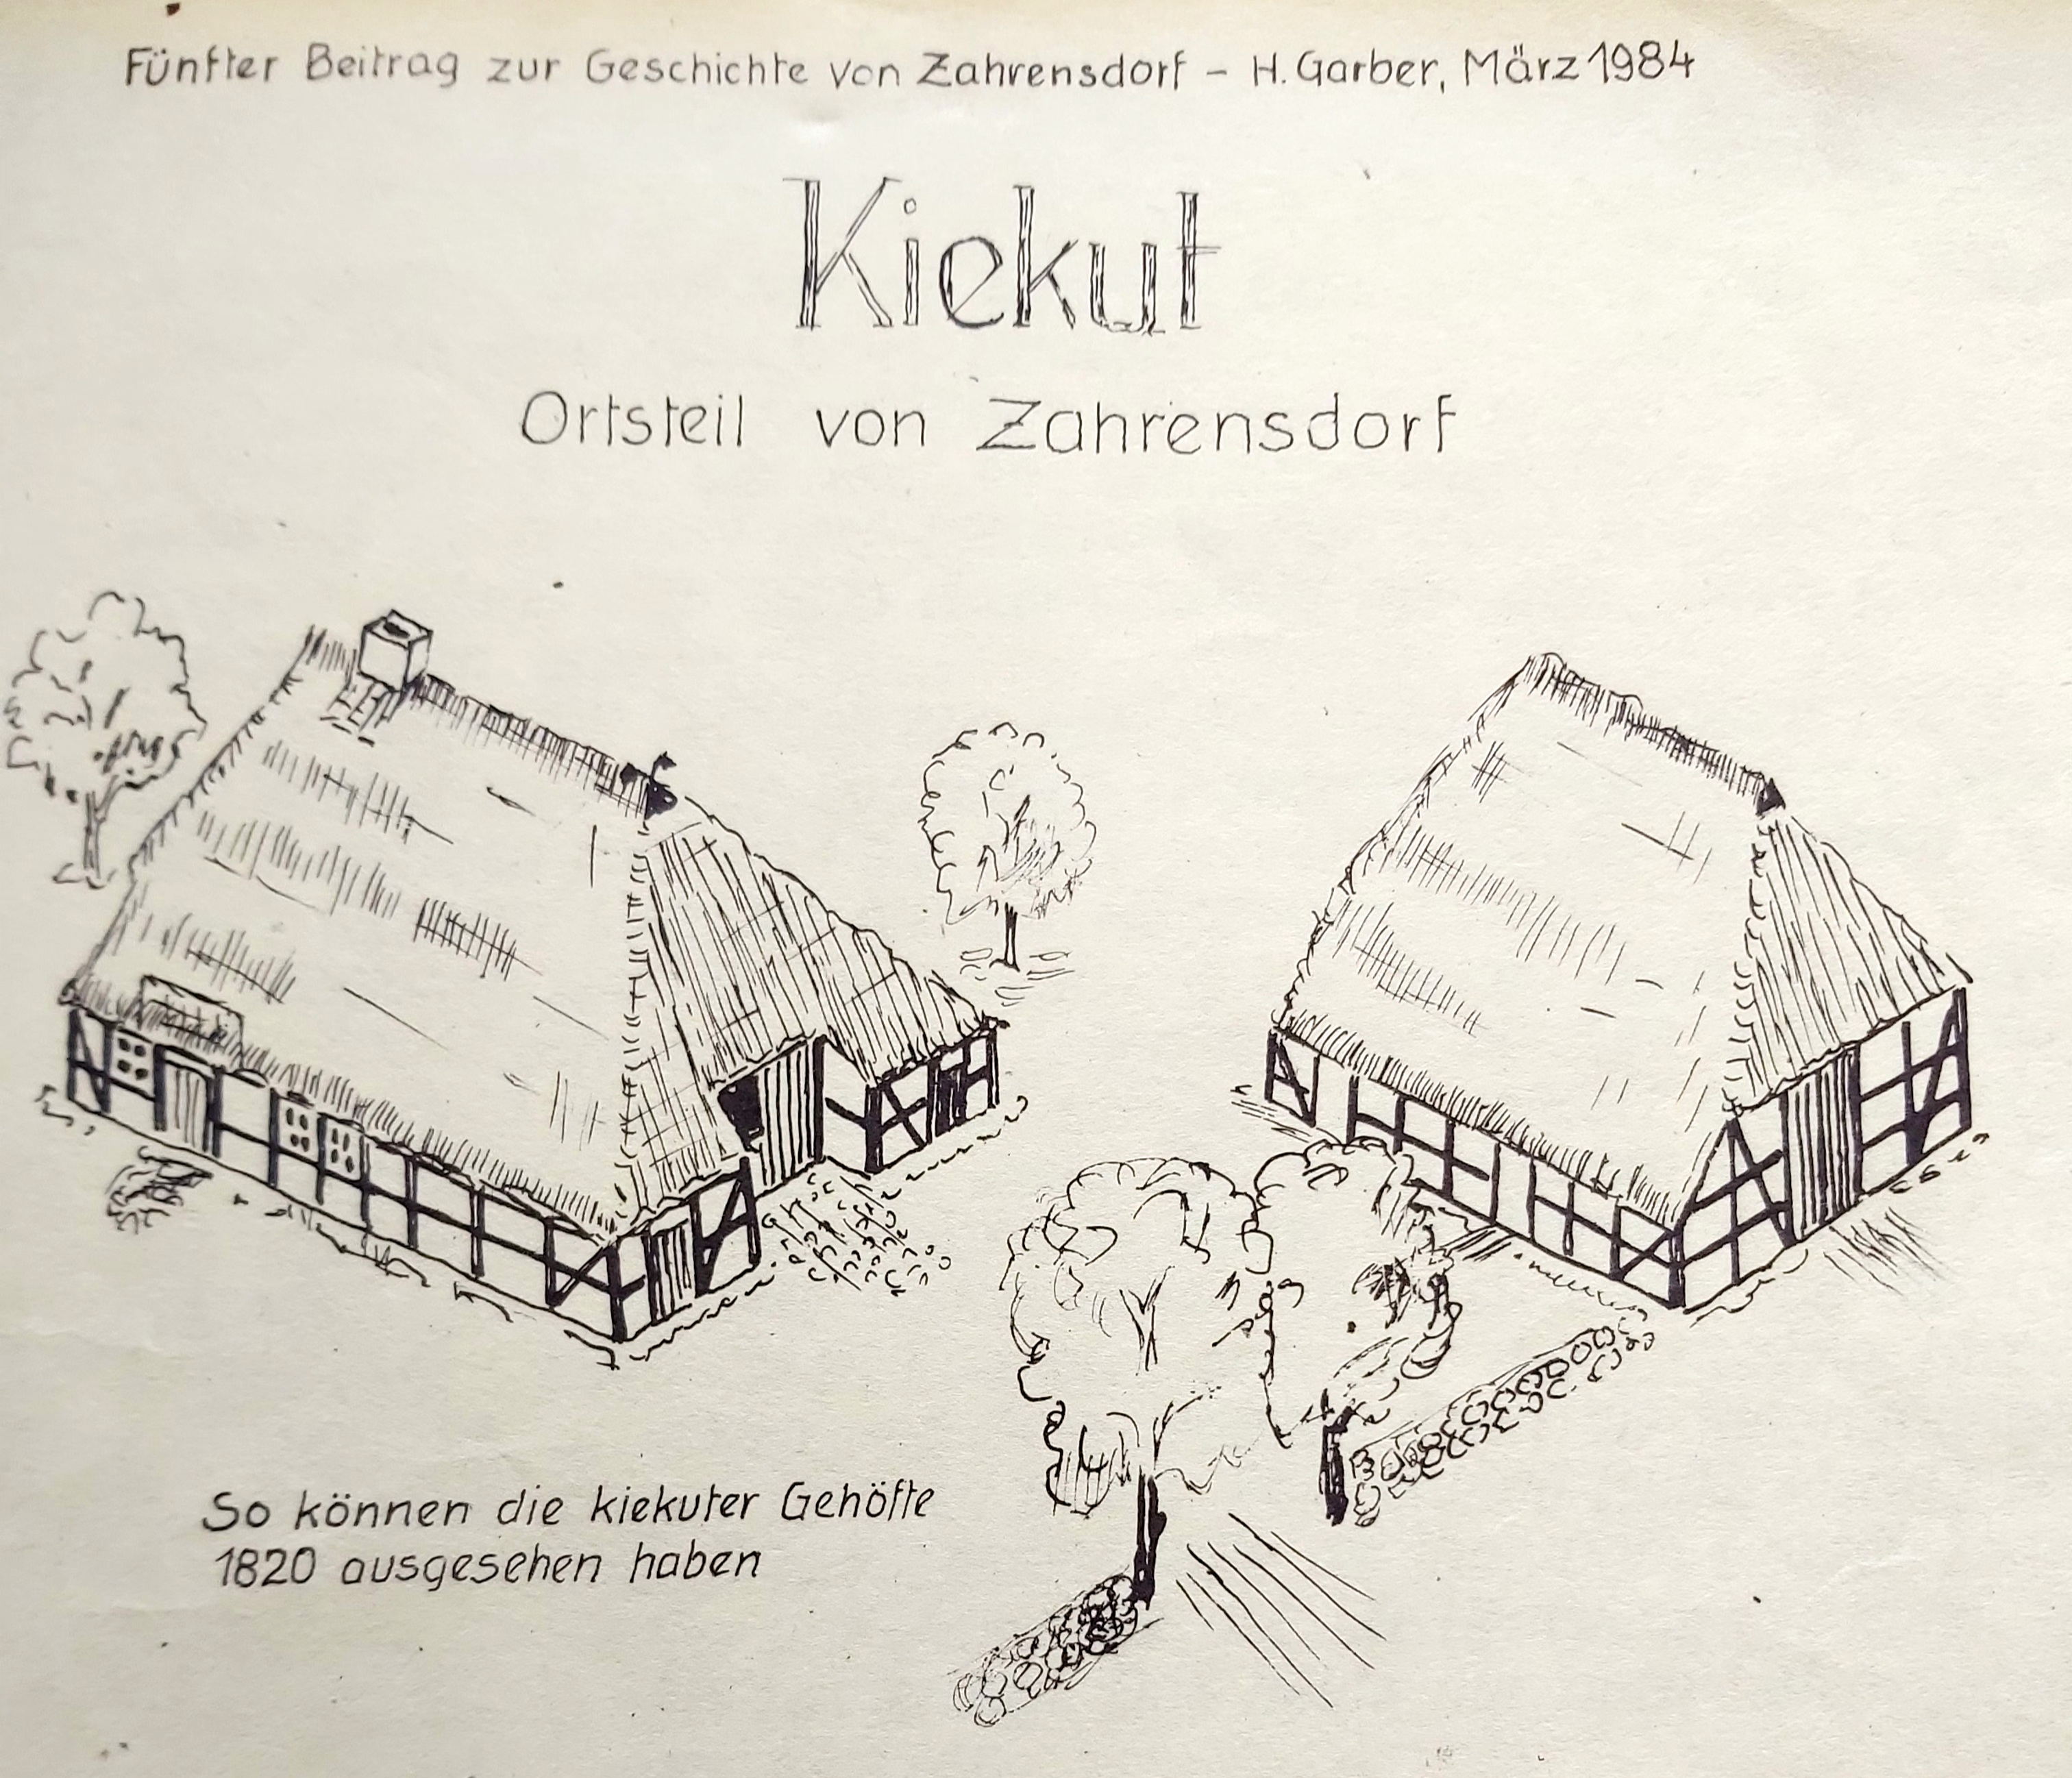 Fünfter Beitrag zur Geschichte von Zahrensdorf – H. Garber, März 1984
Kiekut
Ortsteil von Zahrensdorf
So können die kiekuter Gehöfte
1820 ausgesehen haben